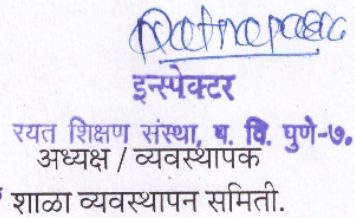 इन्स्पेक्टर
रयत शिक्षण संस्था, प. वि. पुणे-७.
अध्यक्ष / व्यवस्थापक
शाळा व्यवस्थापन समिती.